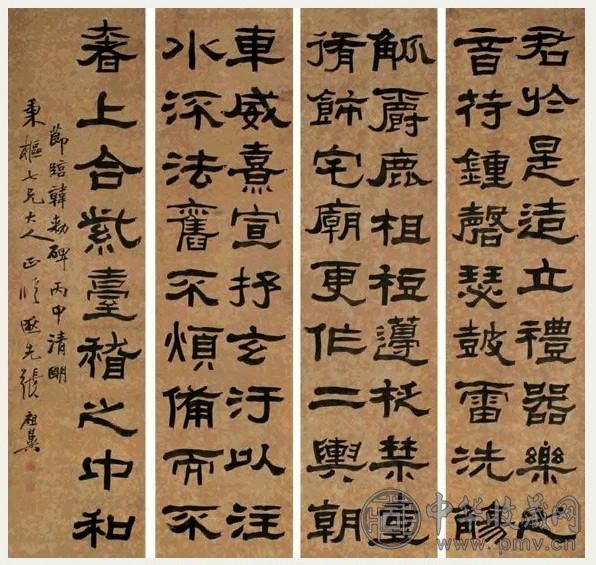 君於是造立禮器樂之
音符鍾磬瑟鼓雷洗觴
觚爵鹿柤梪籩柉禁壺
脩飾宅廟更作二輿朝
車威熹宣抒玄汙以注
水流法舊不煩備而不
奢上合紫臺稽之中和
節臨韓勑碑丙申清明
秉樞七兄大人正 逖先張祖翼
中华收藏网
www.pmv.cn